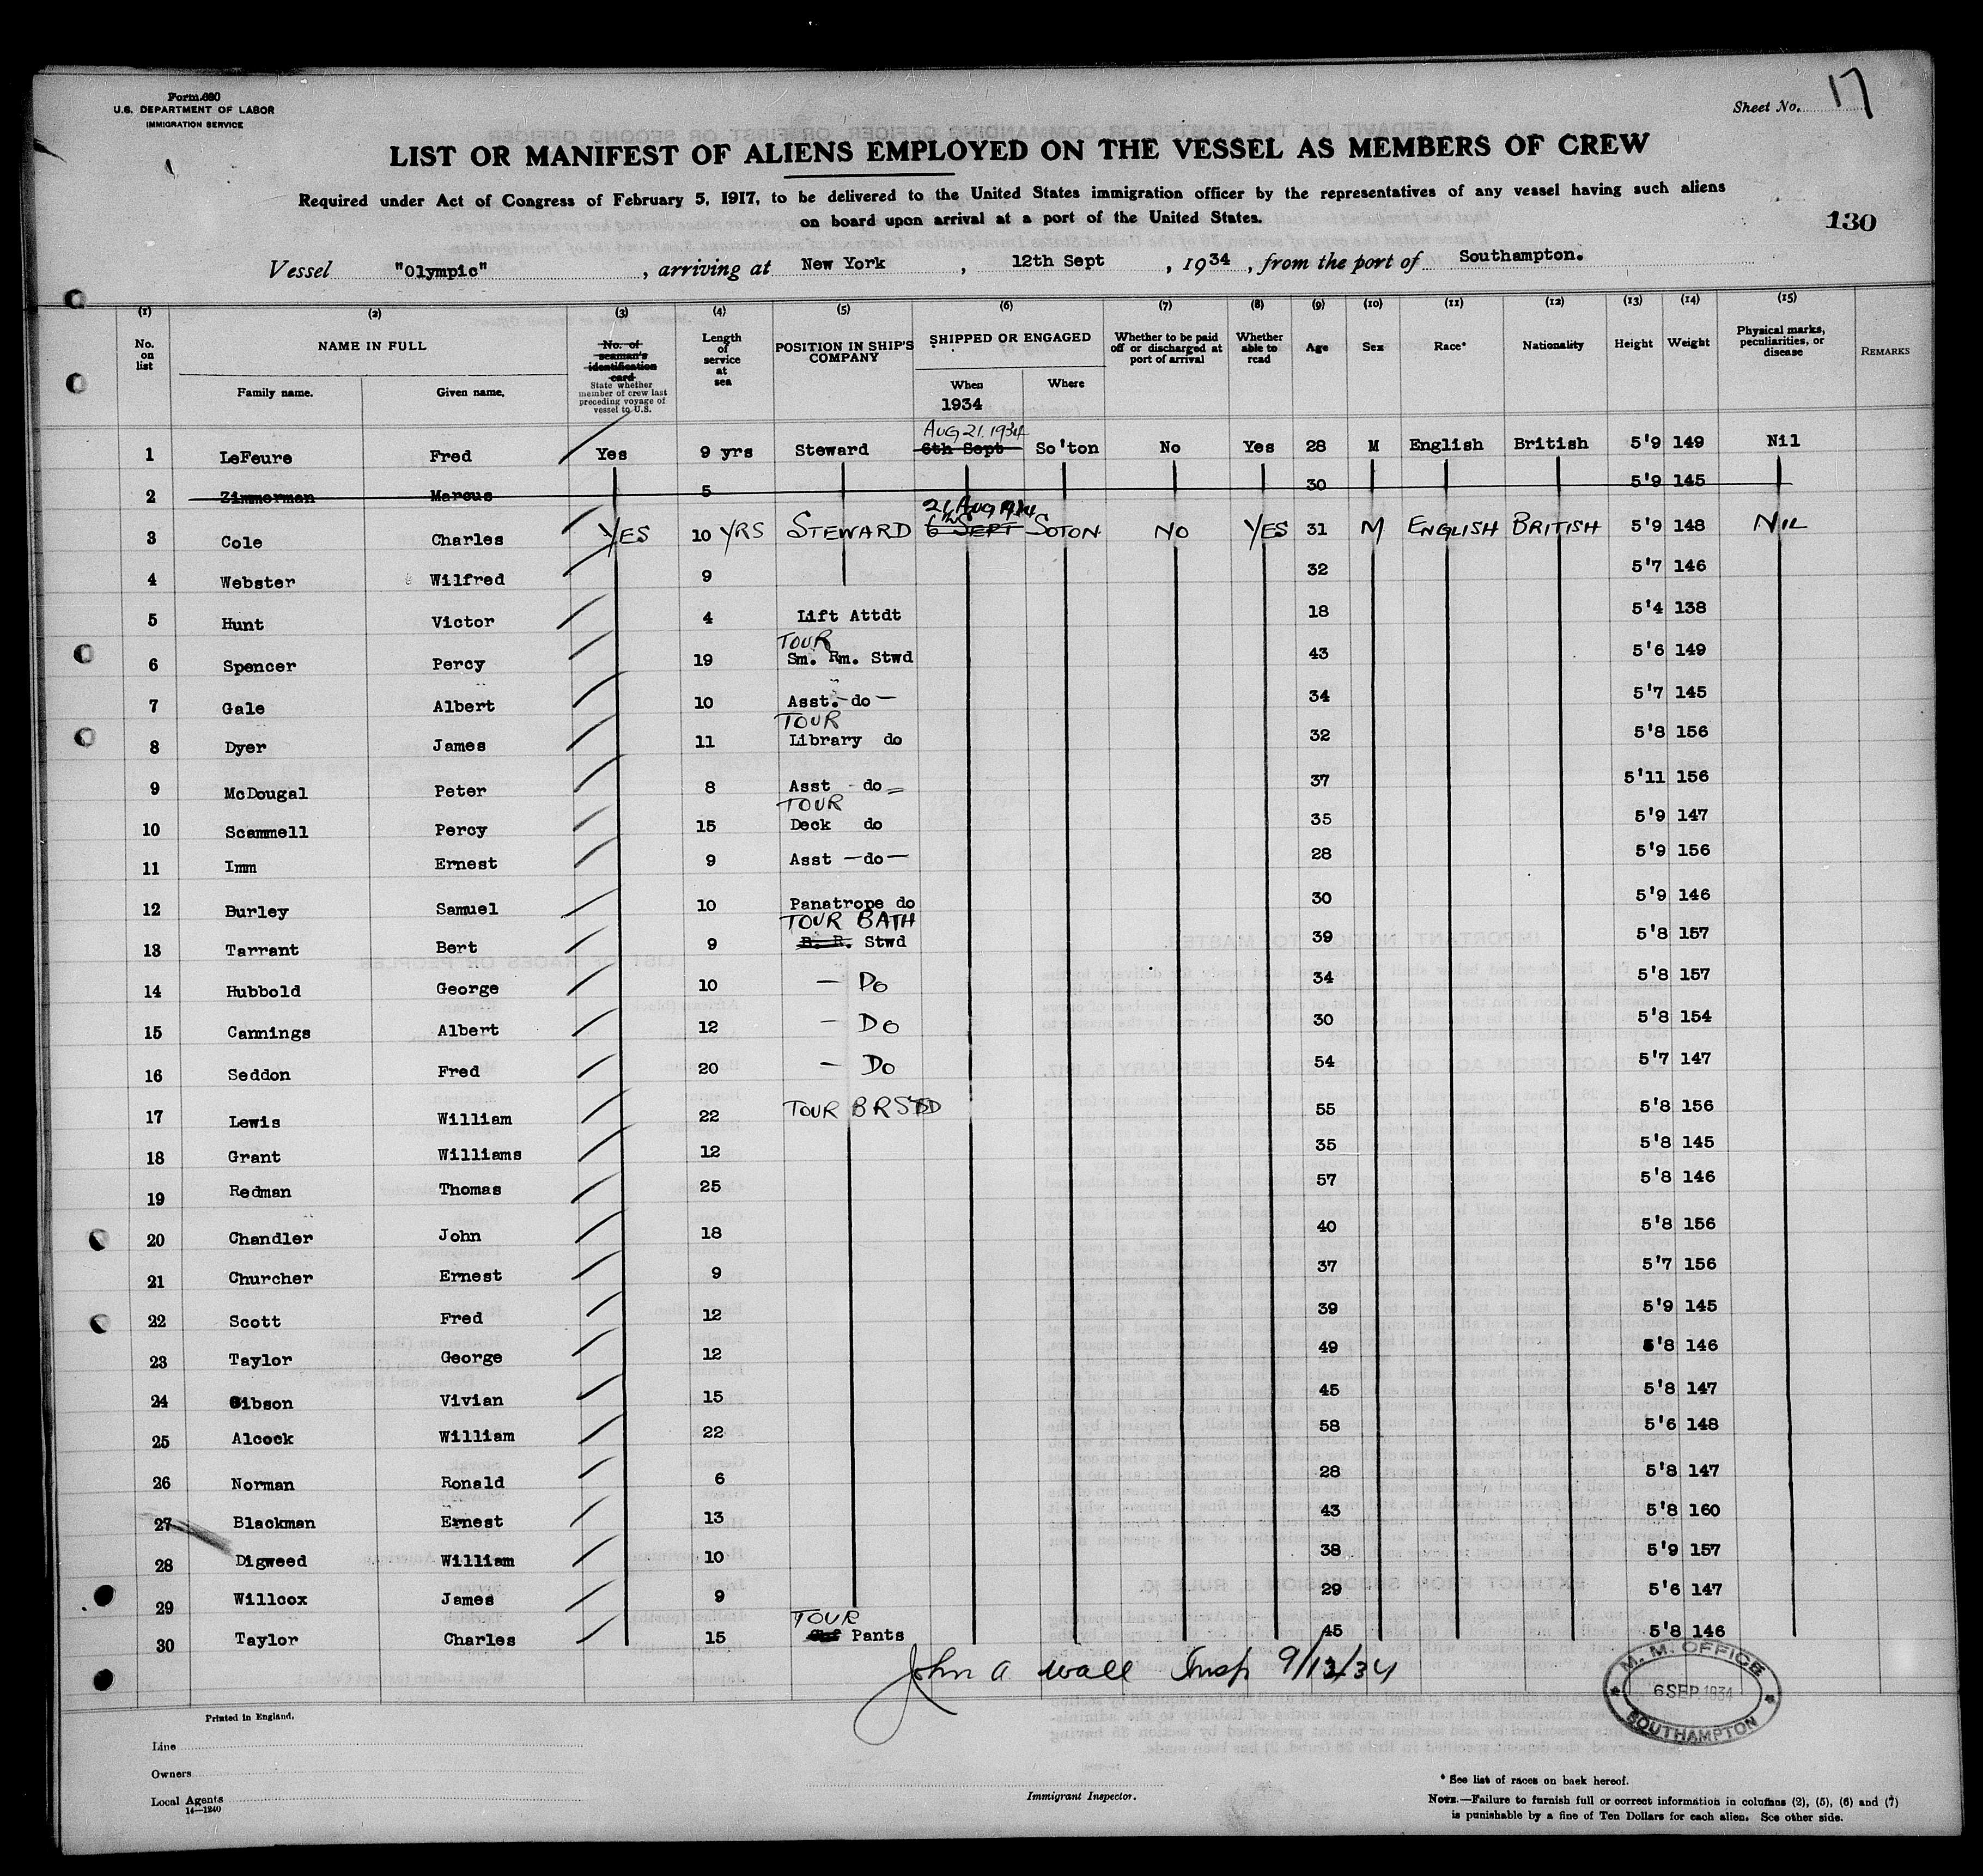 Form 680
U.S. DEPARTMENT OF LABOR
IMMIGRATION SERVICE
Sheet No. 17
LIST OR MANIFEST OF ALIENS EMPLOYED ON THE VESSEL AS MEMBERS OF CREW
Required under Act of Congress of February 5, 1917, to be delivered to the United States immigration officer by the representatives of any vessel having such aliens
on board upon arrival at a port of the United States.
130
Vessel "Olympic", arriving at New York, 12th Sept, 1934, from the port of Southampton.
(1) (2) (3) (4) (5) (6) (7) (8) (9) (10) (11) (12) (13) (14) (15)
No. on list
NAME IN FULL
Family name. Given name.
No. of seaman's identification card
State whether member of crew last preceding voyage of vessel to U.S.
Length of service at sea
POSITION IN SHIP'S COMPANY
SHIPPED OR ENGAGED
When 1934
Where
Whether to be paid off or discharged at port of arrival
Whether able to read
Age
Sex
Race*
Nationality
Height
Weight
Physical marks, peculiarities, or disease
REMARKS
AUG 21. 1934
1 LeFeure Fred Yes 9 yrs Steward 6th Sept So'ton No Yes 28 M English British 5'9 149 Nil
2 Zimmerman Marcus 5 30 5'9 145
21 Aug 1934
3 Cole Charles YES 10 YRS STEWARD 6th SEPT SOTON NO YES 31 M ENGLISH BRITISH 5'9 148 NIL
4 Webster Wilfred 9 32 5'7 146
5 Hunt Victor 4 Lift Attdt 18 5'4 138
TOUR
6 Spencer Percy 19 Sm. Rm. Stwd 43 5'6 149
7 Gale Albert 10 Asst. - do - 34 5'7 145
TOUR
8 Dyer James 11 Library do 32 5'8 156
9 McDougal Peter 8 Asst - do - 37 5'11 156
TOUR
10 Scammell Percy 15 Deck do 35 5'9 147
11 Imm Ernest 9 Asst - do - 28 5'9 156
12 Burley Samuel 10 Panatrope do 30 5'9 146
TOUR BATH
13 Tarrant Bert 9 B. R. Stwd 39 5'8 157
14 Hubbold George 10 - Do 34 5'8 157
15 Cannings Albert 12 - Do 30 5'8 154
16 Seddon Fred 20 - Do 54 5'7 147
17 Lewis William 22 TOUR BRSTD 55 5'8 156
18 Grant Williams 12 35 5'8 145
19 Redman Thomas 25 57 5'8 146
20 Chandler John 18 40 5'8 156
21 Churcher Ernest 9 37 5'7 156
22 Scott Fred 12 39 5'9 145
23 Taylor George 12 49 5'8 146
24 Gibson Vivian 15 45 5'8 147
25 Alcock William 22 58 5'6 148
26 Norman Ronald 6 28 5'8 147
27 Blackman Ernest 13 43 5'8 160
28 Digweed William 10 38 5'9 157
29 Willcox James 9 29 5'6 147
TOUR
30 Taylor Charles 15 Pants 45 5'8 146
John A Wall Insp 9/12/34
M. M. OFFICE
6 SEP 1934
SOUTHAMPTON
Printed in England.
Line
Owners
Local Agents
14—1240
Immigrant Inspector.
* See list of races on back hereof.
NOTE.—Failure to furnish full or correct information in columns (2), (5), (6) and (7)
is punishable by a fine of Ten Dollars for each alien. See other side.